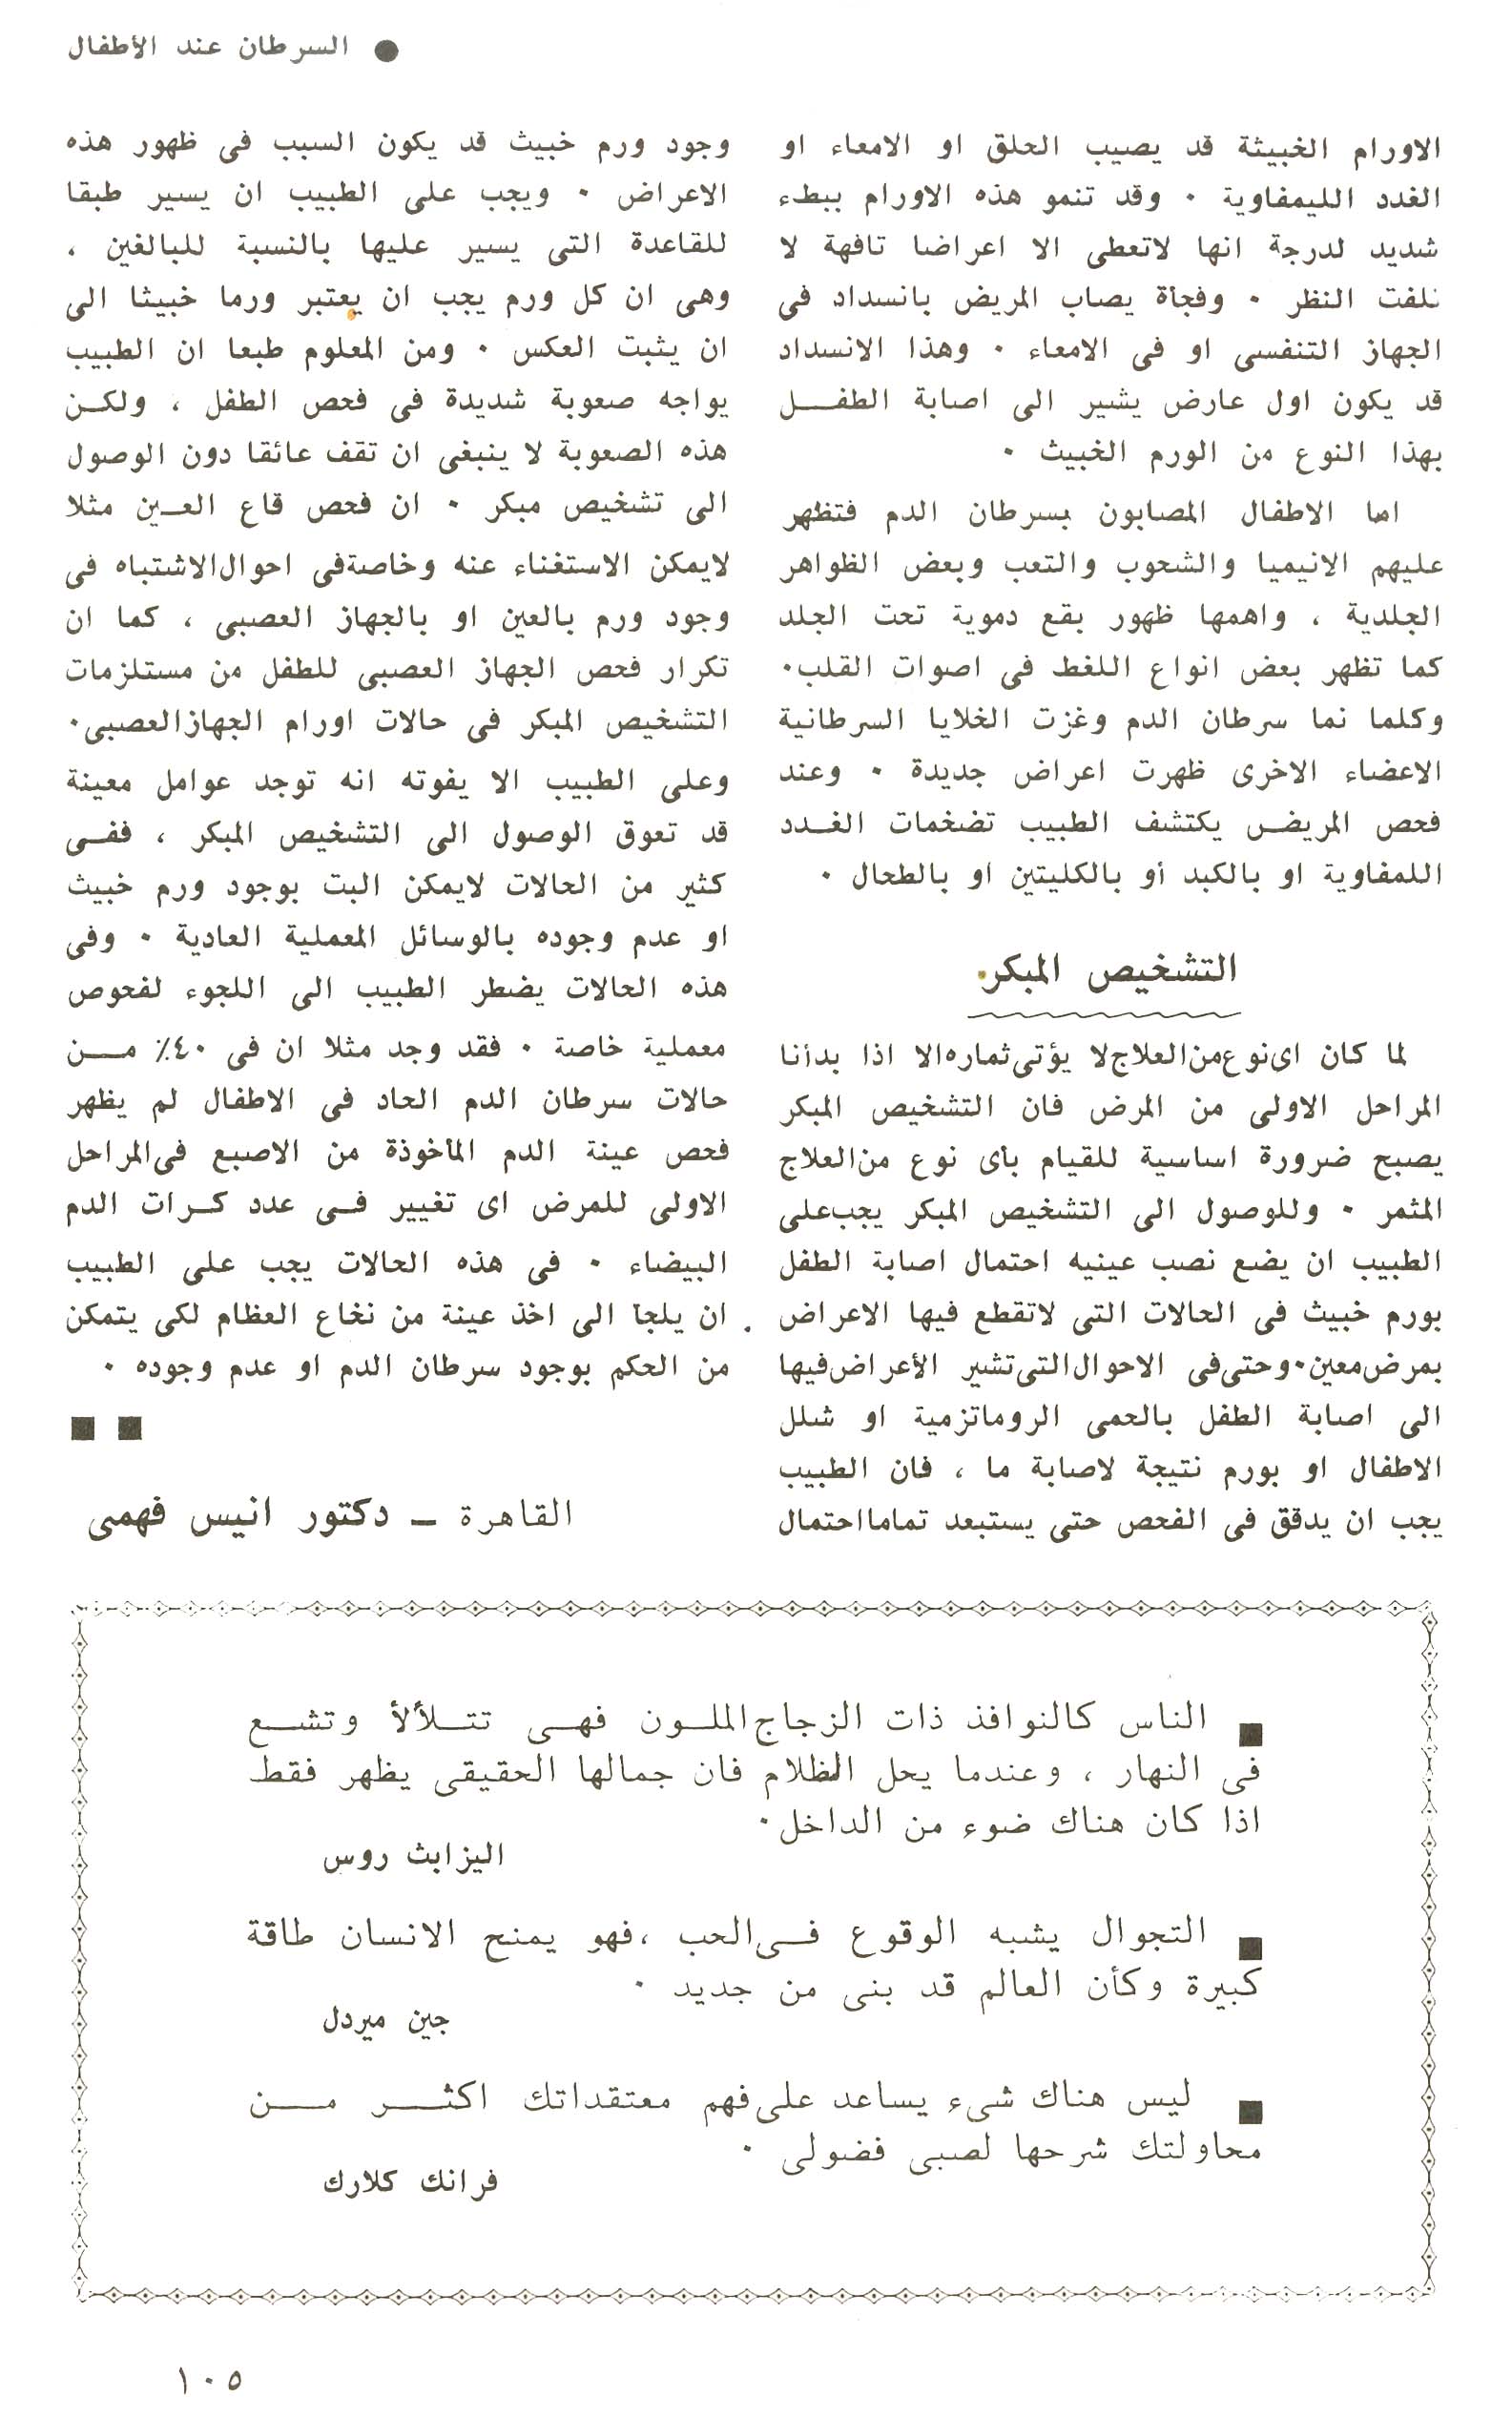 ● السرطان عند الأطفال
الاورام الخبيثة قد يصيب الحلق او الامعاء او
الغدد الليمفاوية ٠ وقد تنمو هذه الاورام ببطء
شديد لدرجة انها لاتعطى الا اعراضا تافهة لا
تلفت النظر ٠ وفجأة يصاب المريض بانسداد فى
الجهاز التنفسى او فى الامعاء ٠ وهذا الانسداد
قد يكون اول عارض يشير الى اصابة الطفل
بهذا النوع من الورم الخبيث ٠
اما الاطفال المصابون بسرطان الدم فتظهر
عليهم الانيميا والشحوب والتعب وبعض الظواهر
الجلدية ، واهمها ظهور بقع دموية تحت الجلد
كما تظهر بعض انواع اللغط فى اصوات القلب٠
وكلما نما سرطان الدم وغزت الخلايا السرطانية
الاعضاء الاخرى ظهرت اعراض جديدة ٠ وعند
فحص المريض يكتشف الطبيب تضخمات الغدد
اللمفاوية او بالكبد أو بالكليتين او بالطحال ٠
التشخيص المبكر
لما كان اى نوع من العلاج لا يؤتى ثماره الا اذا بدأنا
المراحل الاولى من المرض فان التشخيص المبكر
يصبح ضرورة اساسية للقيام بأى نوع من العلاج
المثمر ٠ وللوصول الى التشخيص المبكر يجب على
الطبيب ان يضع نصب عينيه احتمال اصابة الطفل
بورم خبيث فى الحالات التى لاتقطع فيها الاعراض
بمرض معين٠ وحتى فى الاحوال التى تشير الأعراض فيها
الى اصابة الطفل بالحمى الروماتزمية او شلل
الاطفال او بورم نتيجة لاصابة ما ، فان الطبيب
يجب ان يدقق فى الفحص حتى يستبعد تماما احتمال
وجود ورم خبيث قد يكون السبب فى ظهور هذه
الاعراض ٠ ويجب على الطبيب ان يسير طبقا
للقاعدة التى يسير عليها بالنسبة للبالغين ،
وهى ان كل ورم يجب ان يعتبر ورما خبيثا الى
ان يثبت العكس ٠ ومن المعلوم طبعا ان الطبيب
يواجه صعوبة شديدة فى فحص الطفل ، ولكن
هذه الصعوبة لا ينبغى ان تقف عائقا دون الوصول
الى تشخيص مبكر ٠ ان فحص قاع العين مثلا
لايمكن الاستغناء عنه وخاصة فى احوال الاشتباه فى
وجود ورم بالعين او بالجهاز العصبى ، كما ان
تكرار فحص الجهاز العصبى للطفل من مستلزمات
التشخيص المبكر فى حالات اورام الجهاز العصبى٠
وعلى الطبيب الا يفوته انه توجد عوامل معينة
قد تعوق الوصول الى التشخيص المبكر ، ففى
كثير من الحالات لايمكن البت بوجود ورم خبيث
او عدم وجوده بالوسائل المعملية العادية ٠ وفى
هذه الحالات يضطر الطبيب الى اللجوء لفحوص
معملية خاصة ٠ فقد وجد مثلا ان فى ٤٠٪ من
حالات سرطان الدم الحاد فى الاطفال لم يظهر
فحص عينة الدم المأخوذة من الاصبع فى المراحل
الاولى للمرض اى تغيير فى عدد كرات الدم
البيضاء ٠ فى هذه الحالات يجب على الطبيب
ان يلجأ الى اخذ عينة من نخاع العظام لكى يتمكن
من الحكم بوجود سرطان الدم او عدم وجوده ٠
■ ■
القاهرة ــ دكتور انيس فهمى
■ الناس كالنوافذ ذات الزجاج الملون فهى تتلألأ وتشع
فى النهار ، وعندما يحل الظلام فان جمالها الحقيقى يظهر فقط
اذا كان هناك ضوء من الداخل٠
اليزابث روس
■ التجوال يشبه الوقوع فى الحب ،فهو يمنح الانسان طاقة
كبيرة وكأن العالم قد بنى من جديد ٠
جين ميردل
■ ليس هناك شىء يساعد على فهم معتقداتك اكثر من
محاولتك شرحها لصبى فضولى ٠
فرانك كلارك
١٠٥